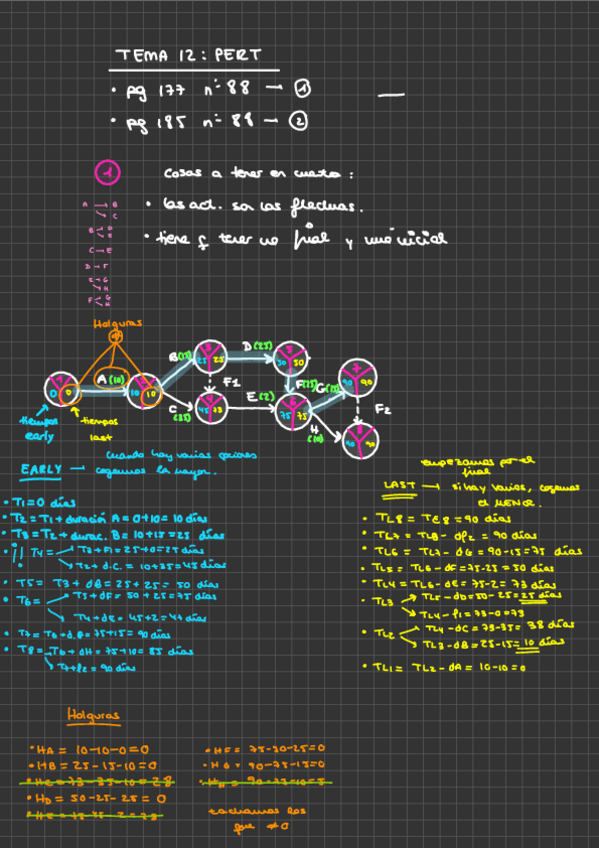 TEMA 12: PERT
• pg 177 nº 88 → ①
• pg 185 nº 88 → ②
① Cosas a tener en cuenta:
• las act. son las flechas.
• tiene q tener un final y un inicial
A → B
C
C → E
D → F
Holguras
A (10)
B (15)
C (35)
D (25)
E (2)
F (25)
G (15)
H (10)
F1
F2
0 0
10 10
25 25
45 73
50 50
75 75
90 90
90 90
tiempos early
tiempos last
EARLY → cuando hay varias opciones cogemos la mayor.
• T1 = 0 días
• T2 = T1 + duración A = 0+10 = 10 días
• T3 = T2 + durac. B = 10+15 = 25 días
• ¡! T4 = T3 + F1 = 25+0 = 25 días
T2 + d.C. = 10+35 = 45 días
• T5 = T3 + dB = 25 + 25 = 50 días
• T6 = T5 + dF = 50 + 25 = 75 días
T4 + dE = 45+2 = 47 días
• T7 = T6 + d.G = 75+15 = 90 días
• T8 = T6 + dH = 75+10 = 85 días
T7+F2 = 90 días
empezamos por el final
LAST → si hay varios, cogemos el MENOR.
• TL8 = TE8 = 90 días
• TL7 = TL8 - dF2 = 90 días
• TL6 = TL7 - dG = 90-15 = 75 días
• TL5 = TL6 - dF = 75-25 = 50 días
• TL4 = TL6 - dE = 75-2 = 73 días
• TL3 TL5 - dD = 50-25 = 25 días
TL4 - F1 = 73-0 = 73
• TL2 TL4 - dC = 73-35 = 38 días
TL3 - dB = 25-15 = 10 días
• TL1 = TL2 - dA = 10-10 = 0
Holguras
• HA = 10-10-0 = 0
• HB = 25-15-10 = 0
• HC = 73-35-10 = 28
• HD = 50-25-25 = 0
• HF = 75-50-25 = 0
• HG = 90-75-15 = 0
• HH = 90-75-10 = 5
tachamos los que ≠ 0